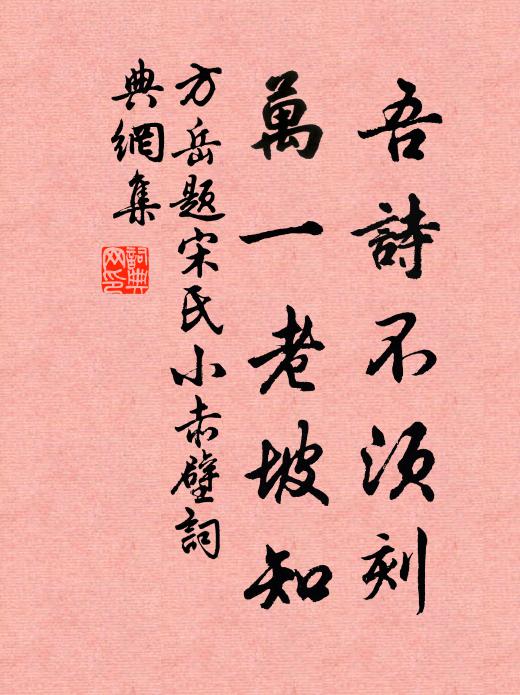 吾詩不須刻
萬一老坡知
方岳題宋氏小赤壁詞
典網集
詞典網印